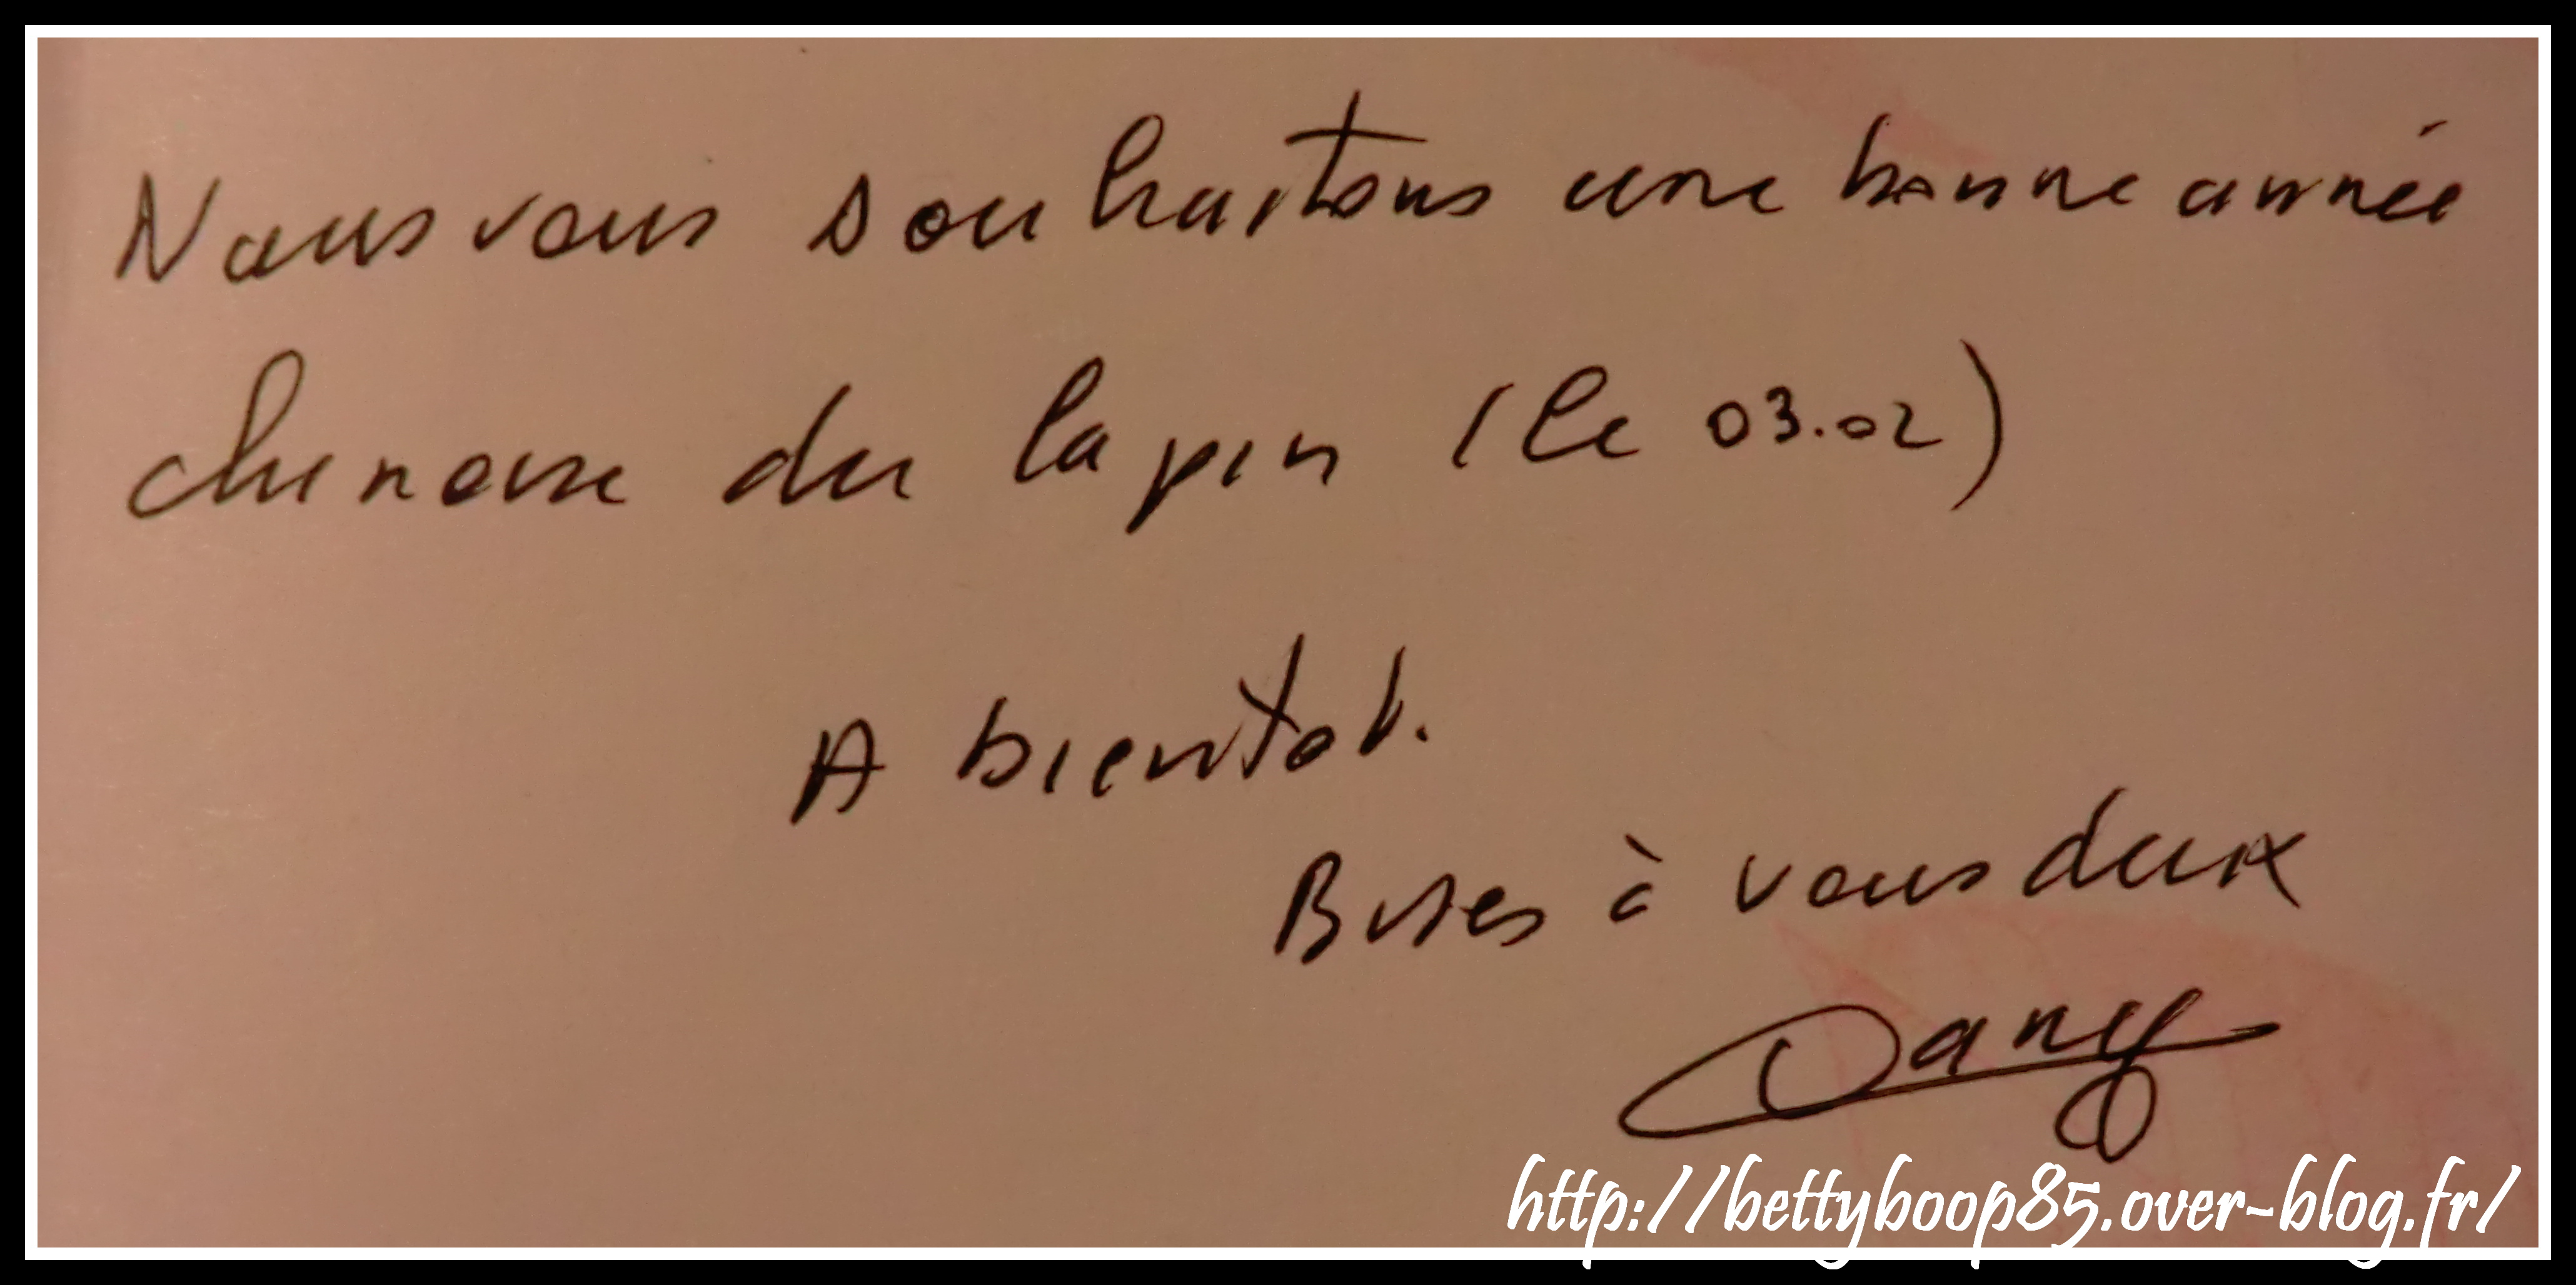 Nous vous souhaitons une bonne année
chinoise du lapin (le 03.02)
A bientot.
Bises à vous deux
Dany
http://bettyboop85.over-blog.fr/